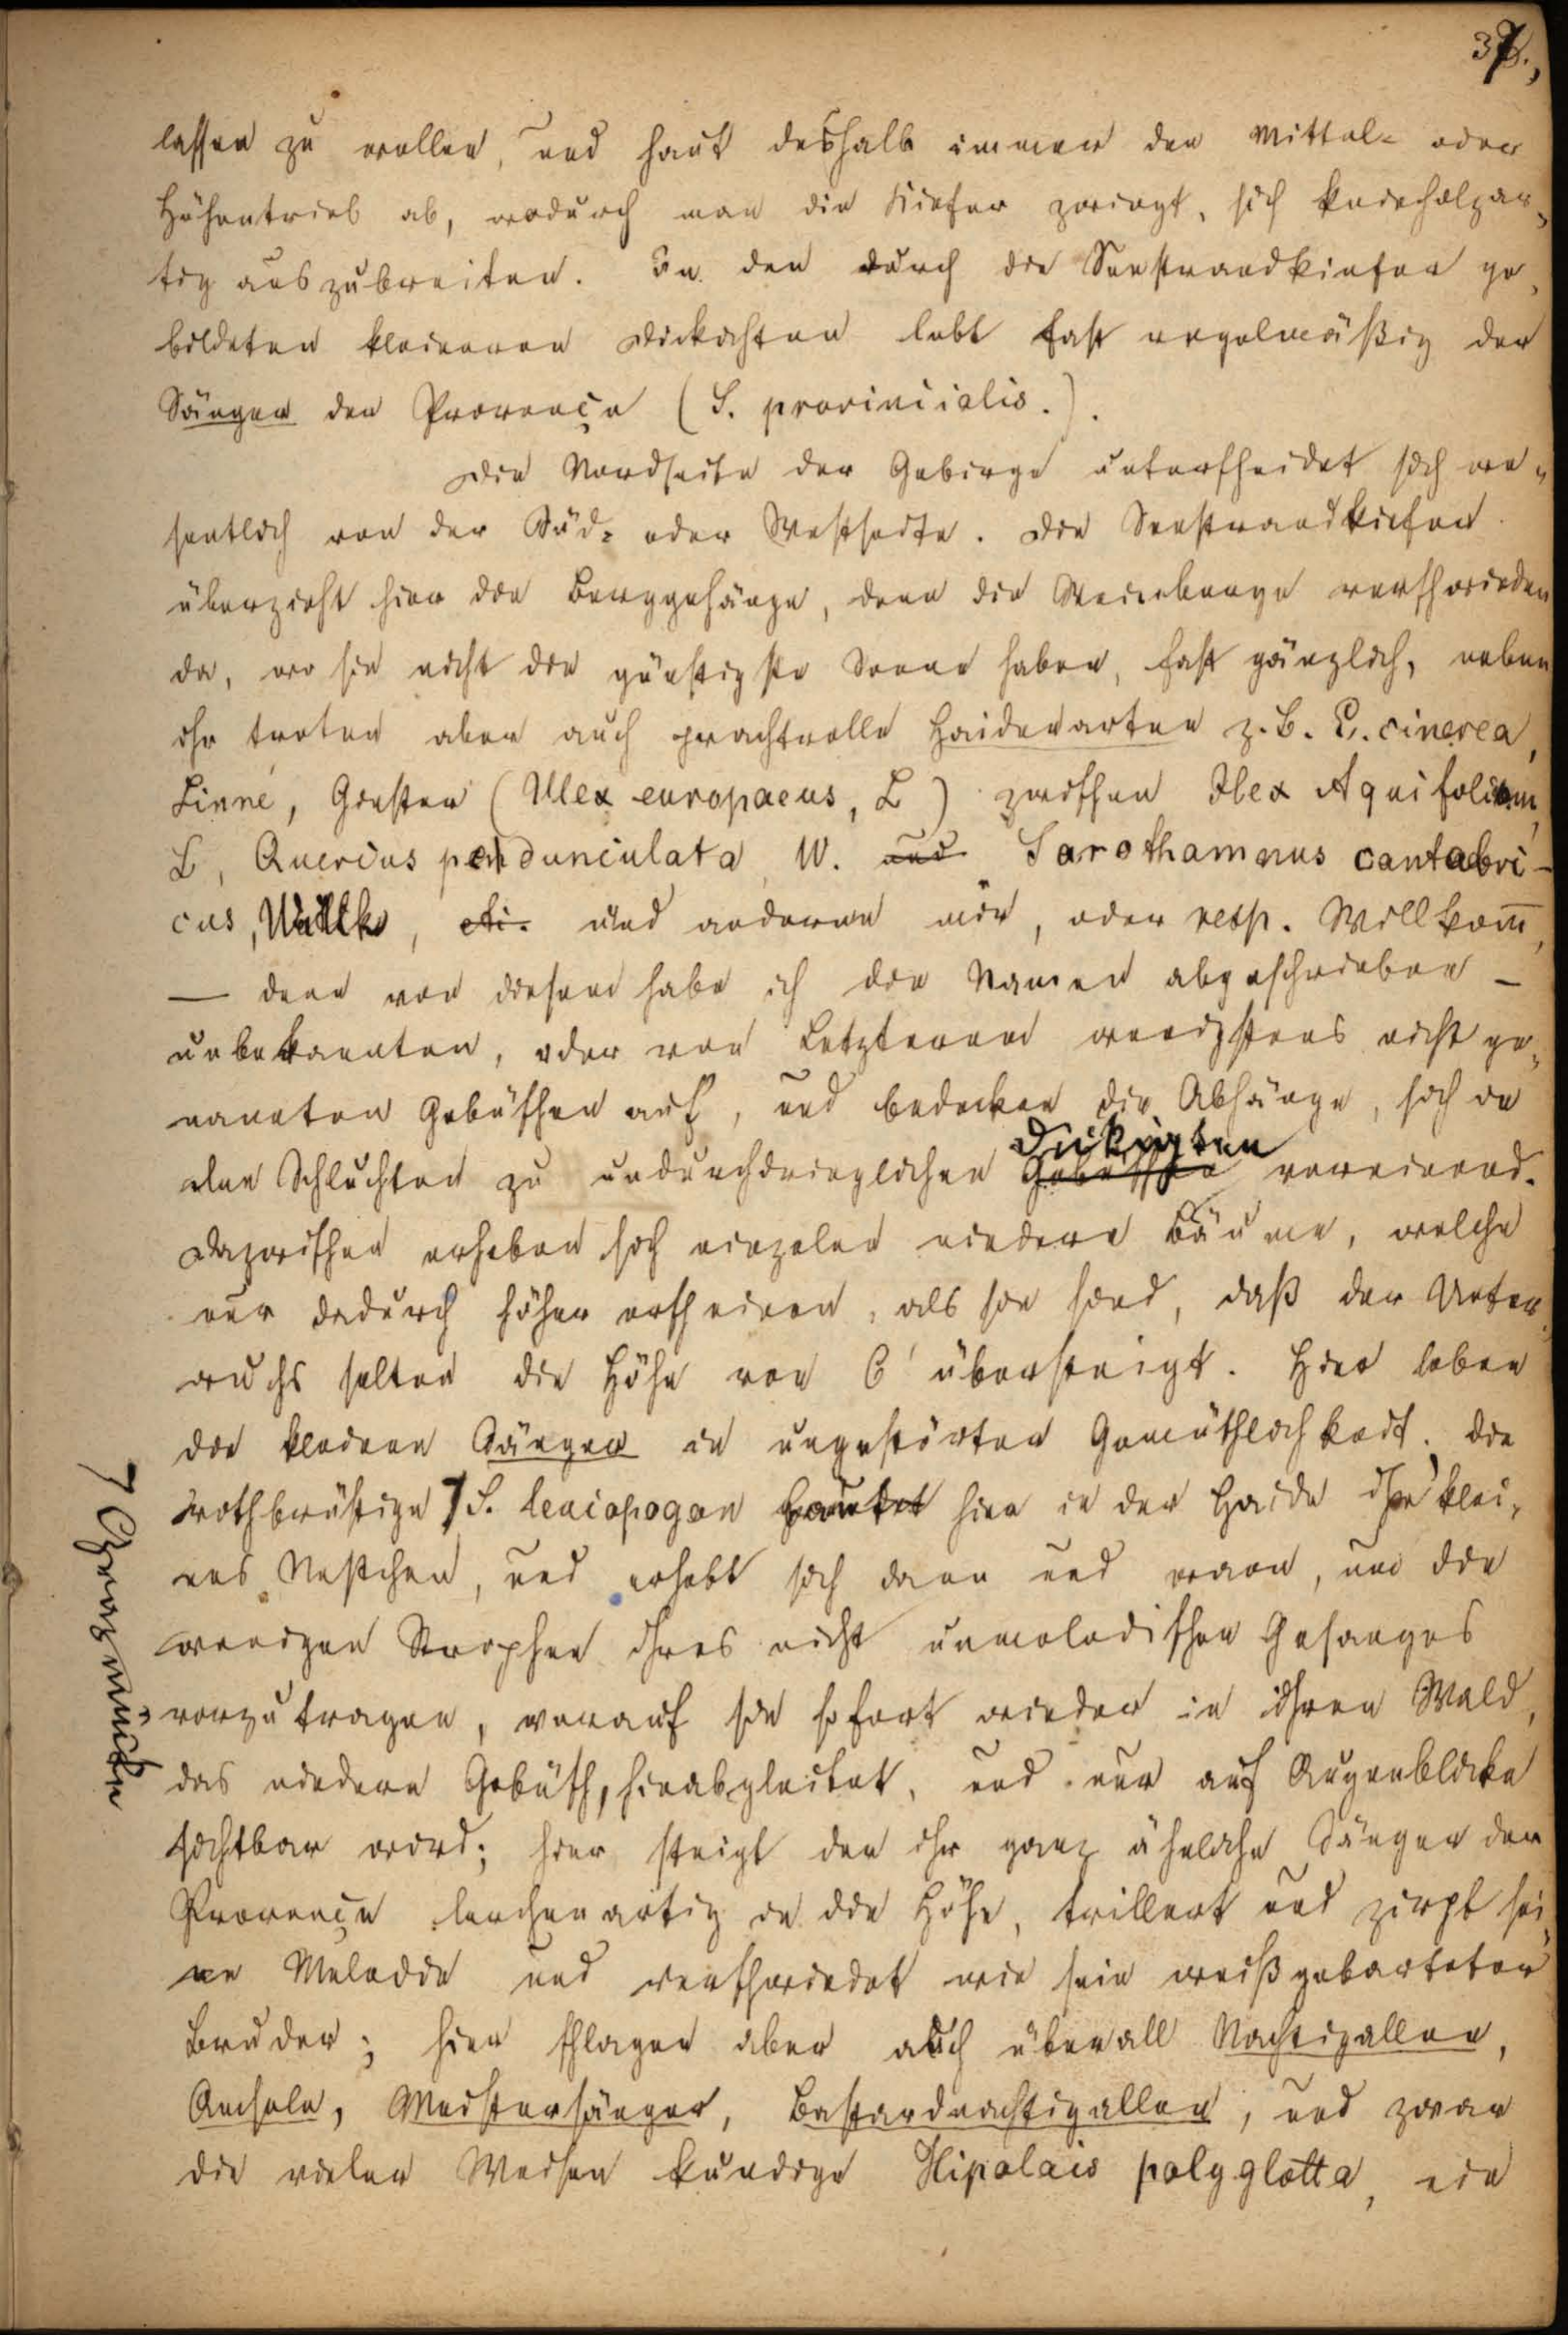 37.,
lassen zu wollen, und haut deshalb immer den Mittel- oder
Höhentrieb ab, wodurch man die Kiefer zwingt, sich knieholzar-
tig auszubreiten. In den durch die Seestrandkiefer ge-
bildeten kleineren Dickichten lebt fast regelmäßig der
Sänger der Provençe (S. provincialis.).
Die Nordseite der Gebirge unterscheidet sich we-
sentlich von der Süd- oder Westseite. Die Seestrandkiefer
überzieht hier die Berggehänge, denn die Weinberge verschwinden
da, wo sie nicht die günstigste Sonne haben, fast gänzlich, neben
ihr treten aber auch prachtvolle Haidenarten z. B. E. cinerea,
Linné, Ginster (Ulex europaeus, L) zwischen Ilex Aquifolium,
L, Quercus pedunculata, W. und Sarothamnus cantabri-
cus, Willk, etc. und anderen mir, oder resp. Willkom̄,
— denn von diesem habe ich die Namen abgeschrieben —
unbekannten, oder von Letzterem wenigstens nicht ge-
nannten Gebüschen auf, und bedecken die Abhänge, sich in
den Schluchten zu undurchdringlichen Gebüschen Dickigten vereinend.
Dazwischen erheben sich einzelne niedere Bäume, welche
nur dadurch höher erscheinen, als sie sind, daß der Unter-
wuchs selten die Höhe von 6' übersteigt. Hier leben
die kleinen Sänger in ungestörter Gemüthlichkeit. Die
rothbrüstige ⌉ S. leucopogon bautet hier in der Haide ihr klei-
⌉ Grasmücke
nes Nestchen, und erhebt sich dann und wann, um die
wenigen Strophen ihres nicht unmelodischen Gesanges
vorzutragen, worauf sie sofort wieder in ihren Wald,
das niedere Gebüsch, hinabgleitet, und nur auf Augenblicke
sichtbar wird; hier steigt der ihr ganz ähnliche Sänger der
Provençe lerchenartig in die Höhe, trillert und zirpt sei-
ne Melodie und verschwindet wie sein weißgebarteter
Bruder; hier schlagen aber auch überall Nachtigallen,
Amseln, Meistersänger, Bastardnachtigallen, und zwar
die vielen Weisen kundige Hipolais polyglotta, ein